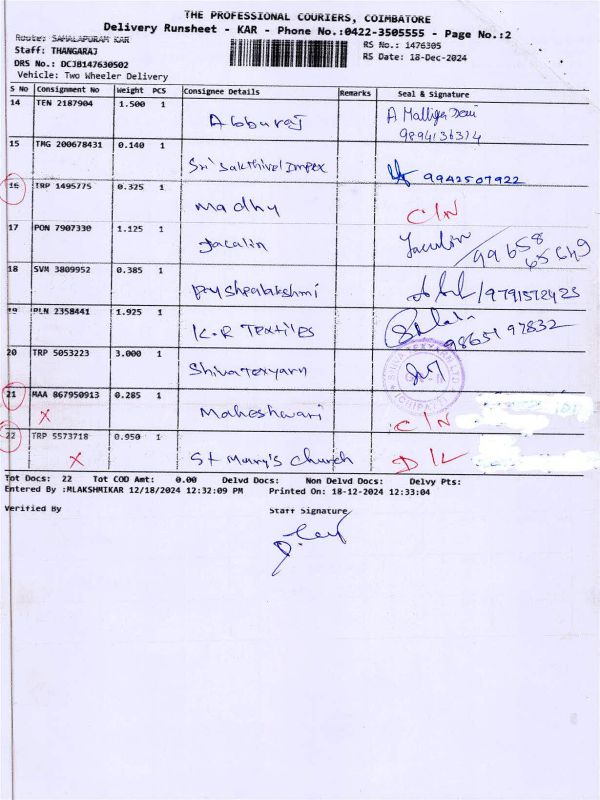 THE PROFESSIONAL COURIERS, COIMBATORE
Delivery Runsheet - KAR - Phone No.:0422-3505555 - Page No.:2
Route: SAHALAPURAM KAR
RS No.: 1476305
Staff: THANGARAJ
RS Date: 18-Dec-2024
DRS No.: DCJB147630502
Vehicle: Two Wheeler Delivery
S No Consignment No Weight PCS Consignee Details Remarks Seal & Signature
14 TEN 2187904 1.500 1 Abburaj A Malliga Devi
9894136314
15 TMG 200678431 0.140 1 Sri Sakthivel Impex 9942507922
16 TRP 1495775 0.325 1 Madhu C/N
17 PON 7907330 1.125 1 Jacalin Jacalin / 99658 65649
18 SVM 3809952 0.385 1 Pushpalakshmi /9791572423
19 PLN 2358441 1.925 1 K.R Textiles 9865197832
20 TRP 5053223 3.000 1 Shivatexyarn SHIVA TEXYARN LTD
21 MAA 867950913 0.285 1 Maheshwari C/N
X
22 TRP 5573718 0.950 1 St Mary's Church D/L
X
Tot Docs: 22 Tot COD Amt: 0.00 Delvd Docs: Non Delvd Docs: Delvy Pts:
Entered By :MLAKSHMIKAR 12/18/2024 12:32:09 PM Printed On: 18-12-2024 12:33:04
Verified By Staff Signature